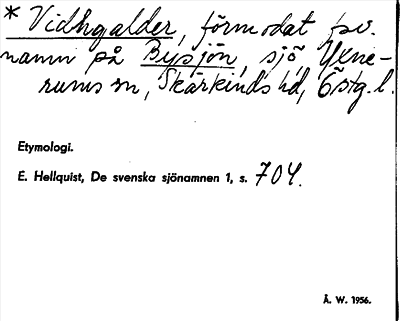 * Vidhgalder, förmodat fsv.
namn på Bysjön, sjö, Yxne-
rums sn, Skärkinds hd, Östg. l.
Etymologi.
E. Hellquist, De svenska sjönamnen 1, s. 704.
Å. W. 1956.